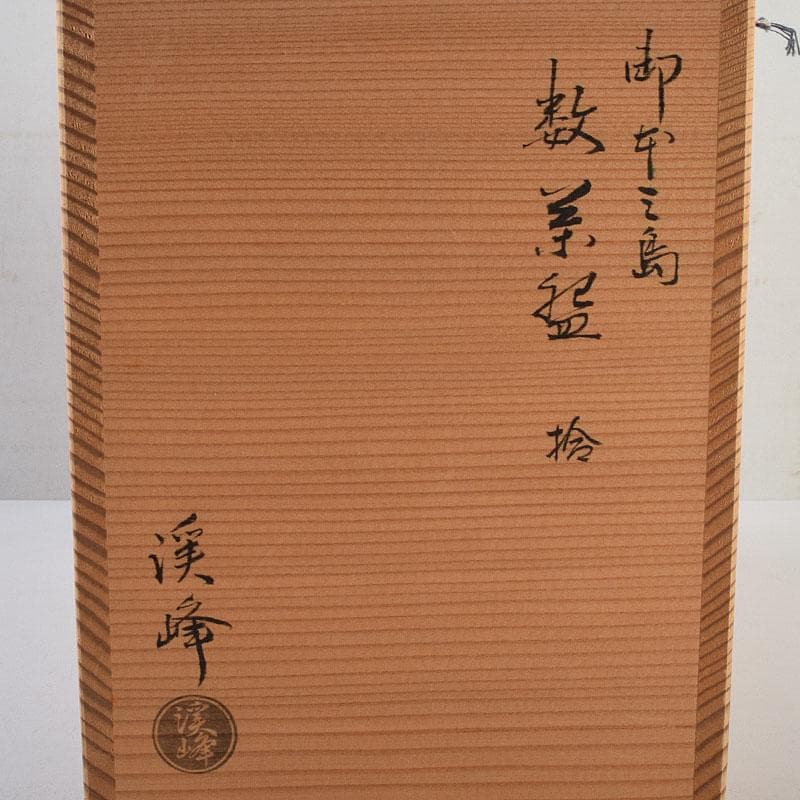 御本三島
数茶盌 拾
渓峰
渓峰